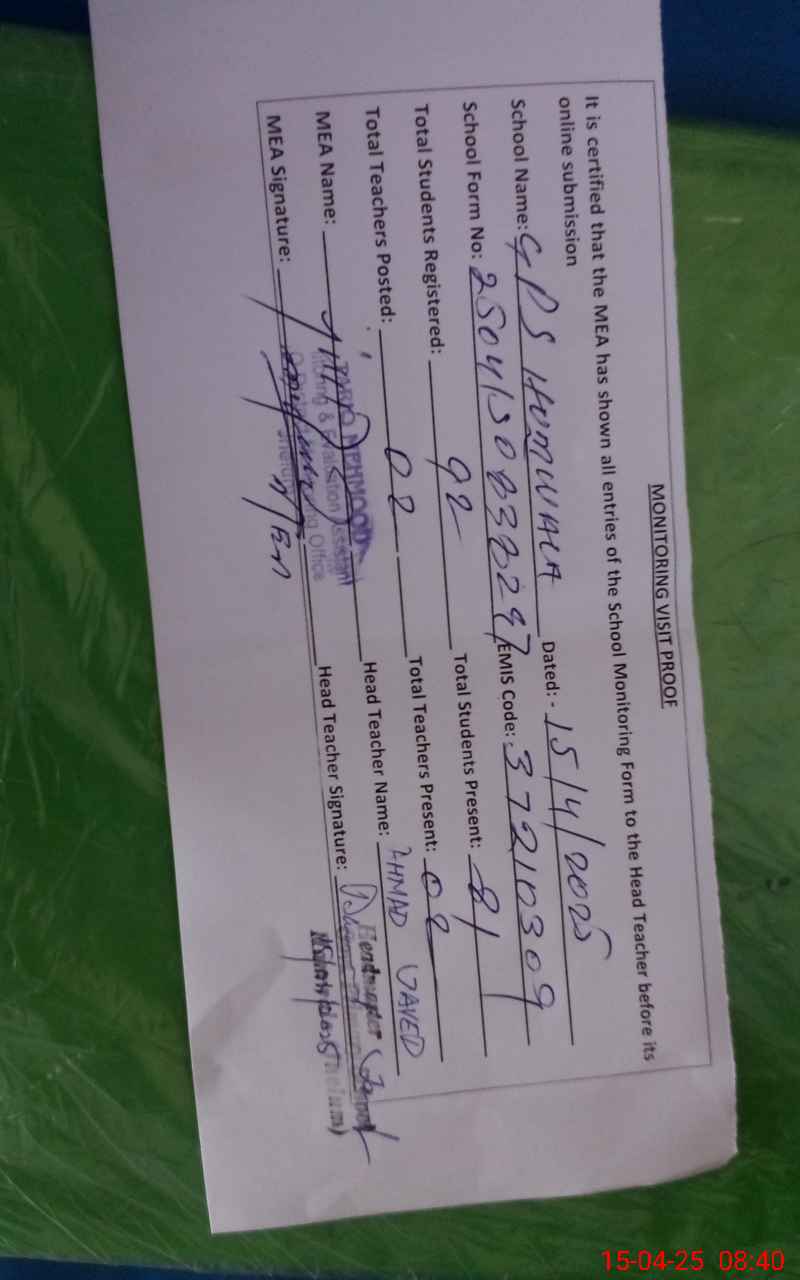 MONITORING VISIT PROOF
It is certified that the MEA has shown all entries of the School Monitoring Form to the Head Teacher before its
online submission
School Name: GPS HUMWALA Dated: - 15/4/2025
School Form No: EMIS Code: 37210309
Total Students Registered: 92 Total Students Present: 81
Total Teachers Posted: 02 Total Teachers Present: 02
MEA Name: Head Teacher Name: AHMAD JAVED
TARIQ MEHMOOD
Monitoring & Evaluation Assistant
Office
MEA Signature: Head Teacher Signature:
Headmaster
(Jhelum)
15-04-25 08:40